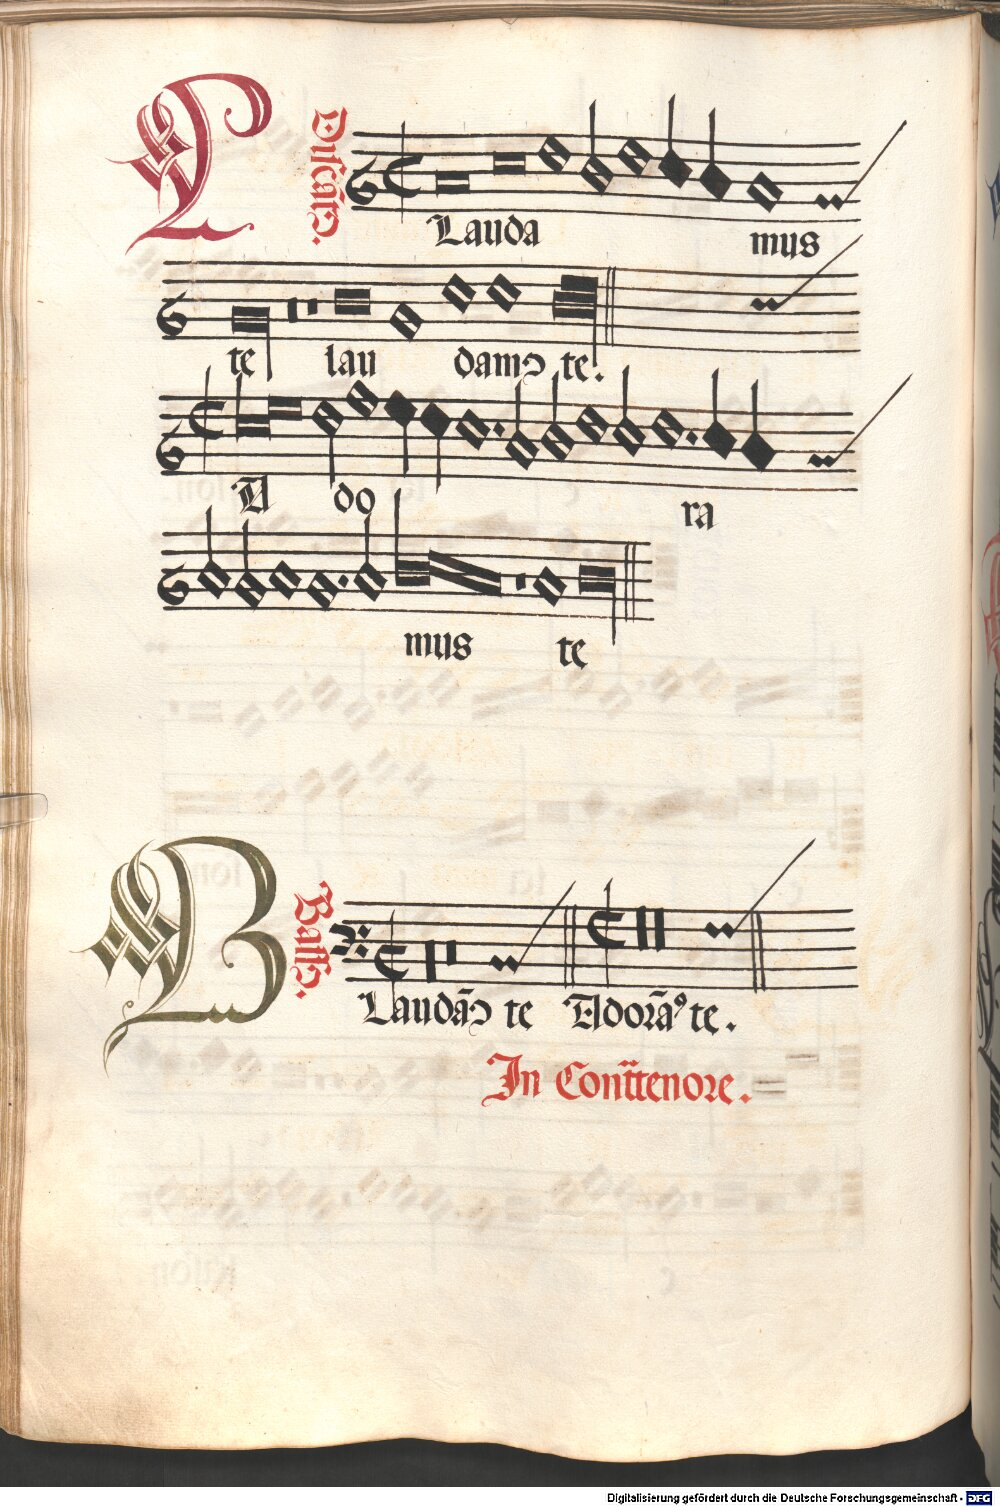 L
Discãtꝰ.
Lauda mus
te lau damꝰ te.
A do ra
mus te
B
Bassꝰ.
Laudãꝰ te Adorãꝰ te.
In Contratenore.
Digitalisierung gefördert durch die Deutsche Forschungsgemeinschaft - DFG